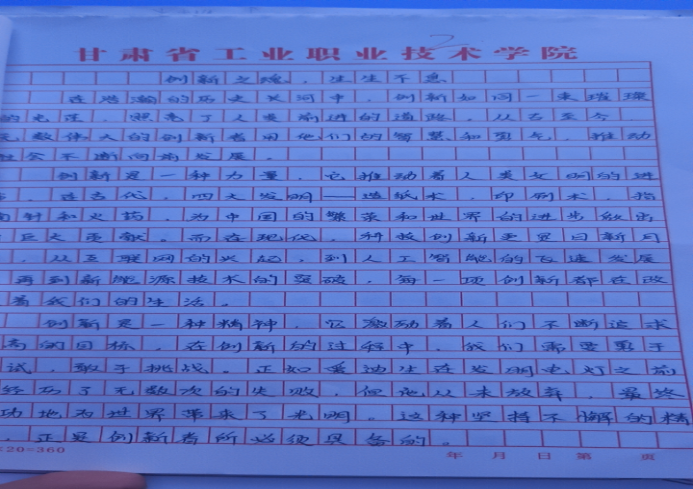 2
甘肃省工业职业技术学院
创新之魂，生生不息
在浩瀚的历史长河中，创新如同一束璀璨
的光芒，照亮了人类前进的道路。从古至今
无数伟大的创新者用他们的智慧和勇气，推动
社会不断向前发展。
创新是一种力量，它推动着人类文明的进
，在古代，四大发明——造纸术，印刷术，指
南针和火药，为中国的繁荣和世界的进步做出
巨大贡献。而在现代，科技创新更是日新月
，从互联网的兴起，到人工智能的飞速发展
再到新能源技术的突破，每一项创新都在改
着我们的生活。
创新是一种精神，它激励着人们不断追求
高的目标，在创新的过程中，我们需要勇于
试，敢于挑战。正如爱迪生在发明电灯之前
经历了无数次的失败，但他从未放弃，最终
功地为世界带来了光明。这种坚持不懈的精
，正是创新者所必须具备的。
20=360
年 月 日 第 页